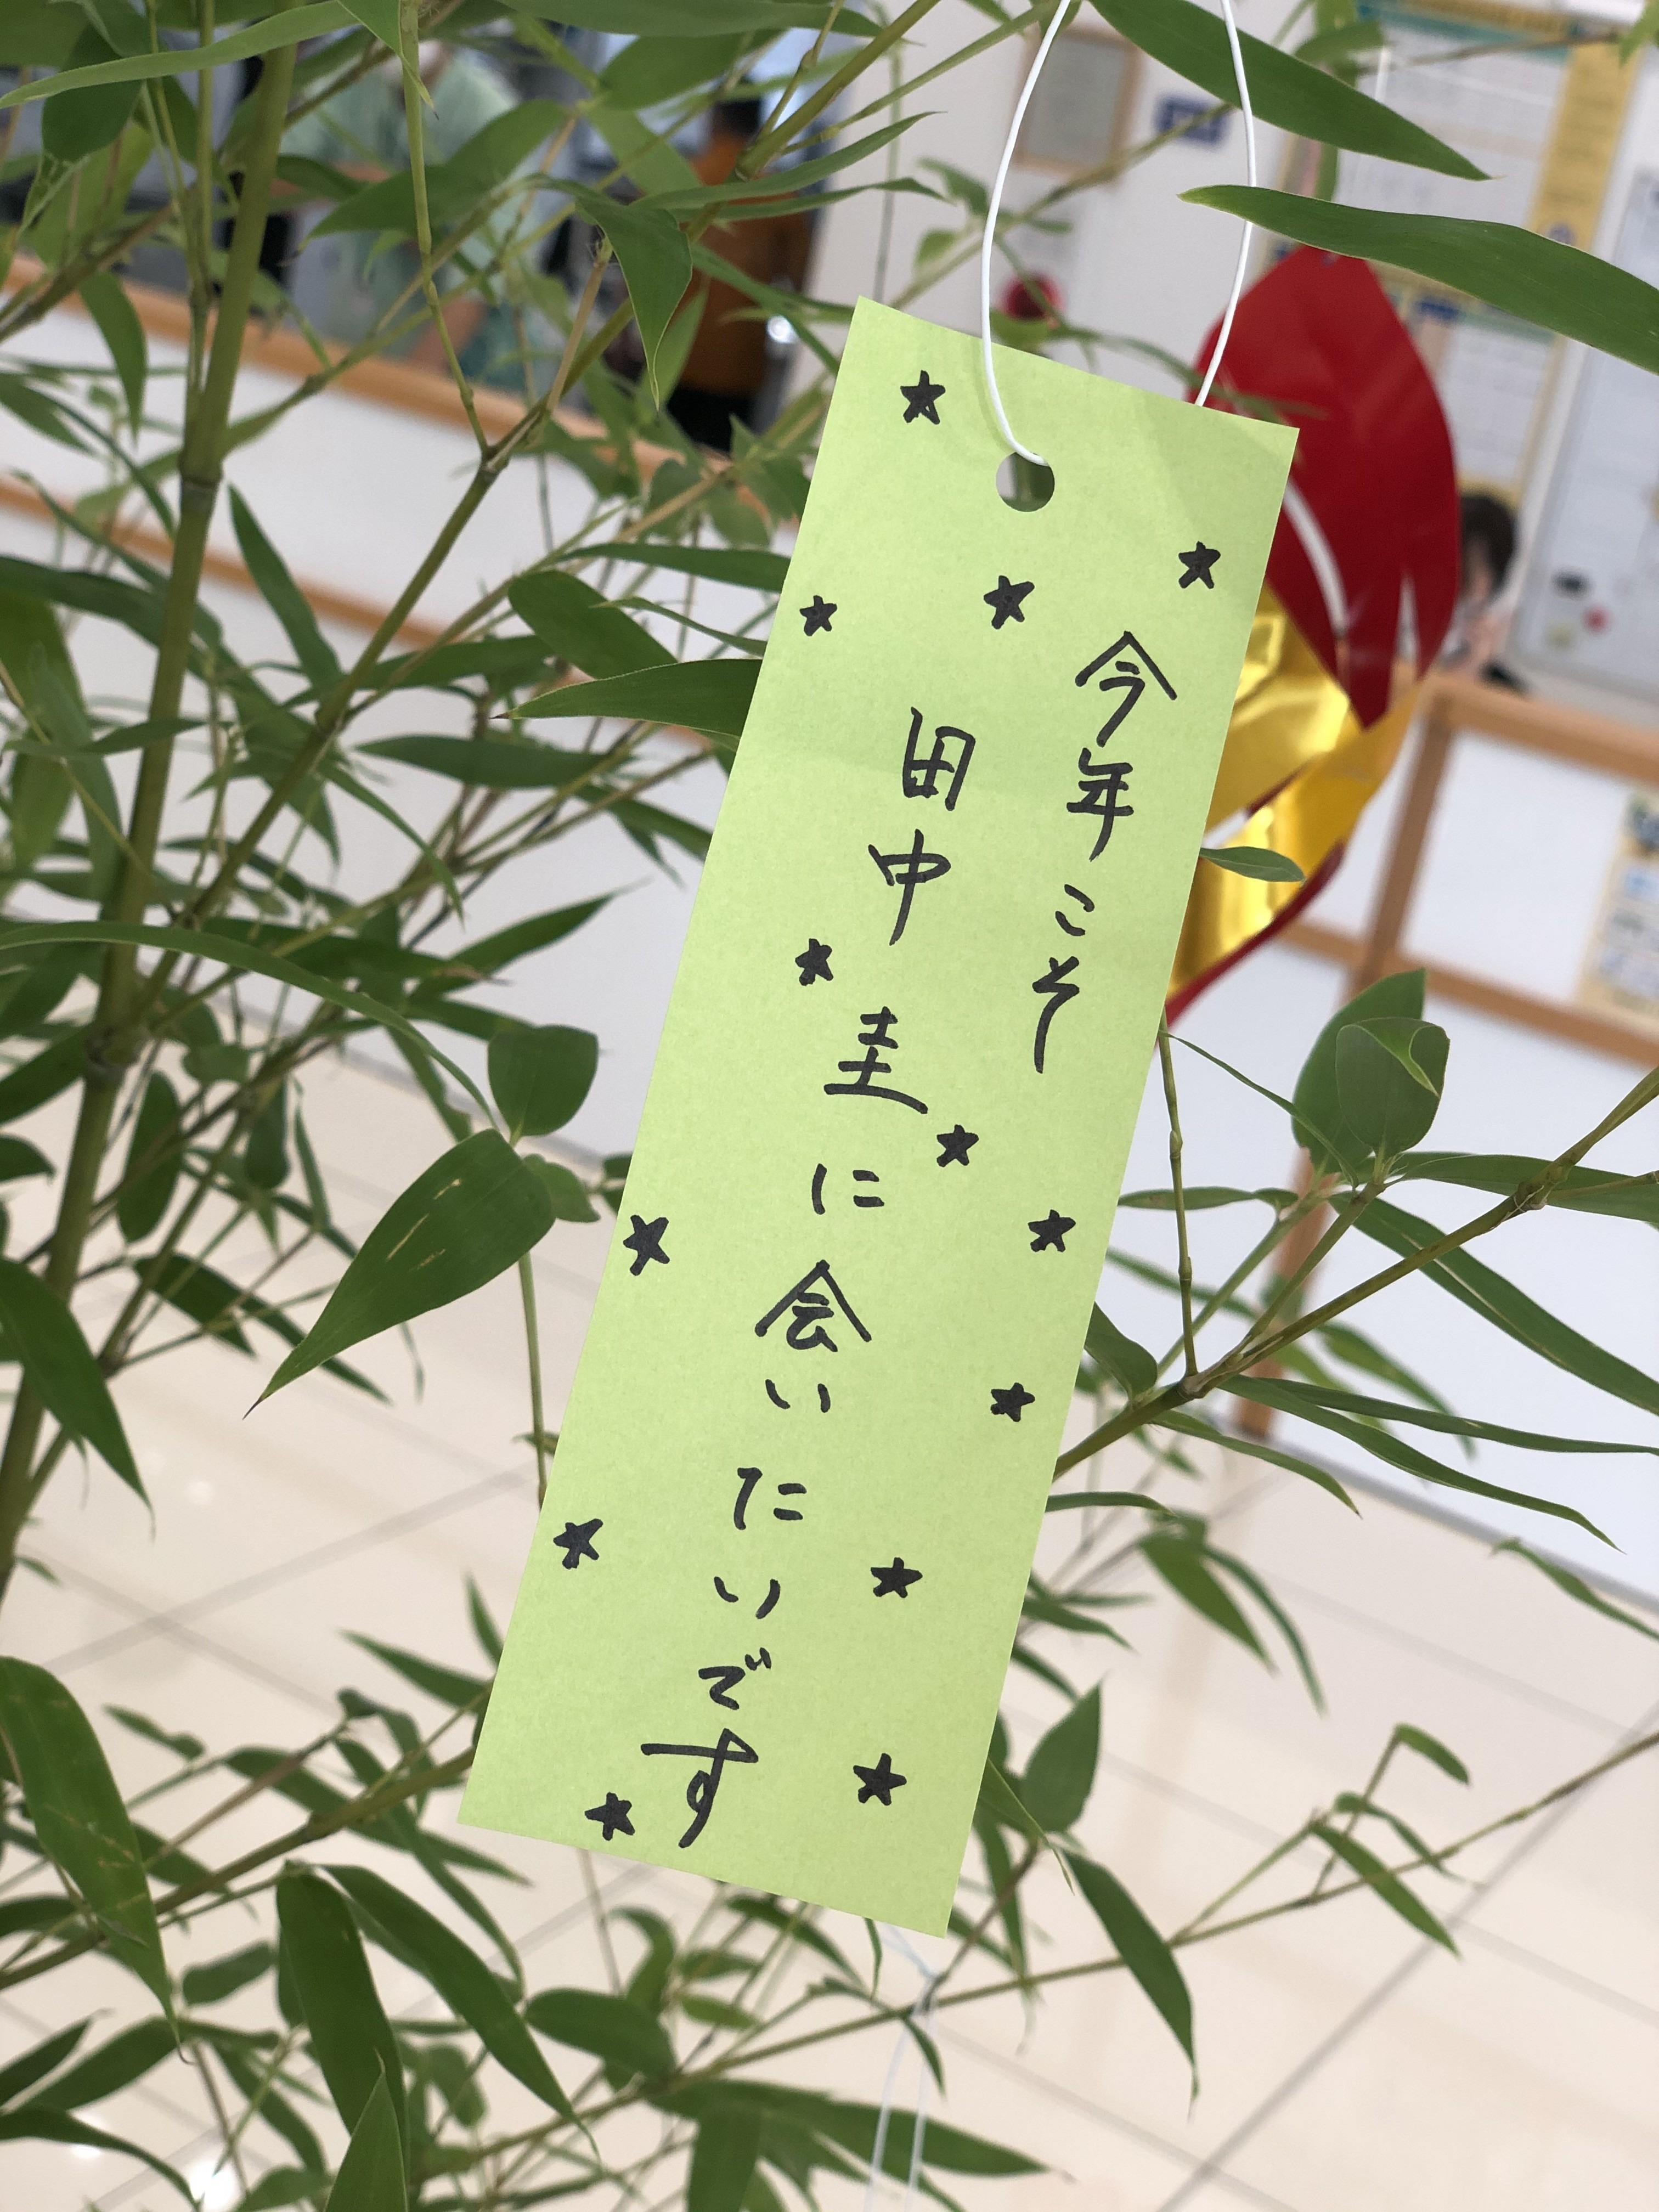 今年こそ
田中圭に会いたいです